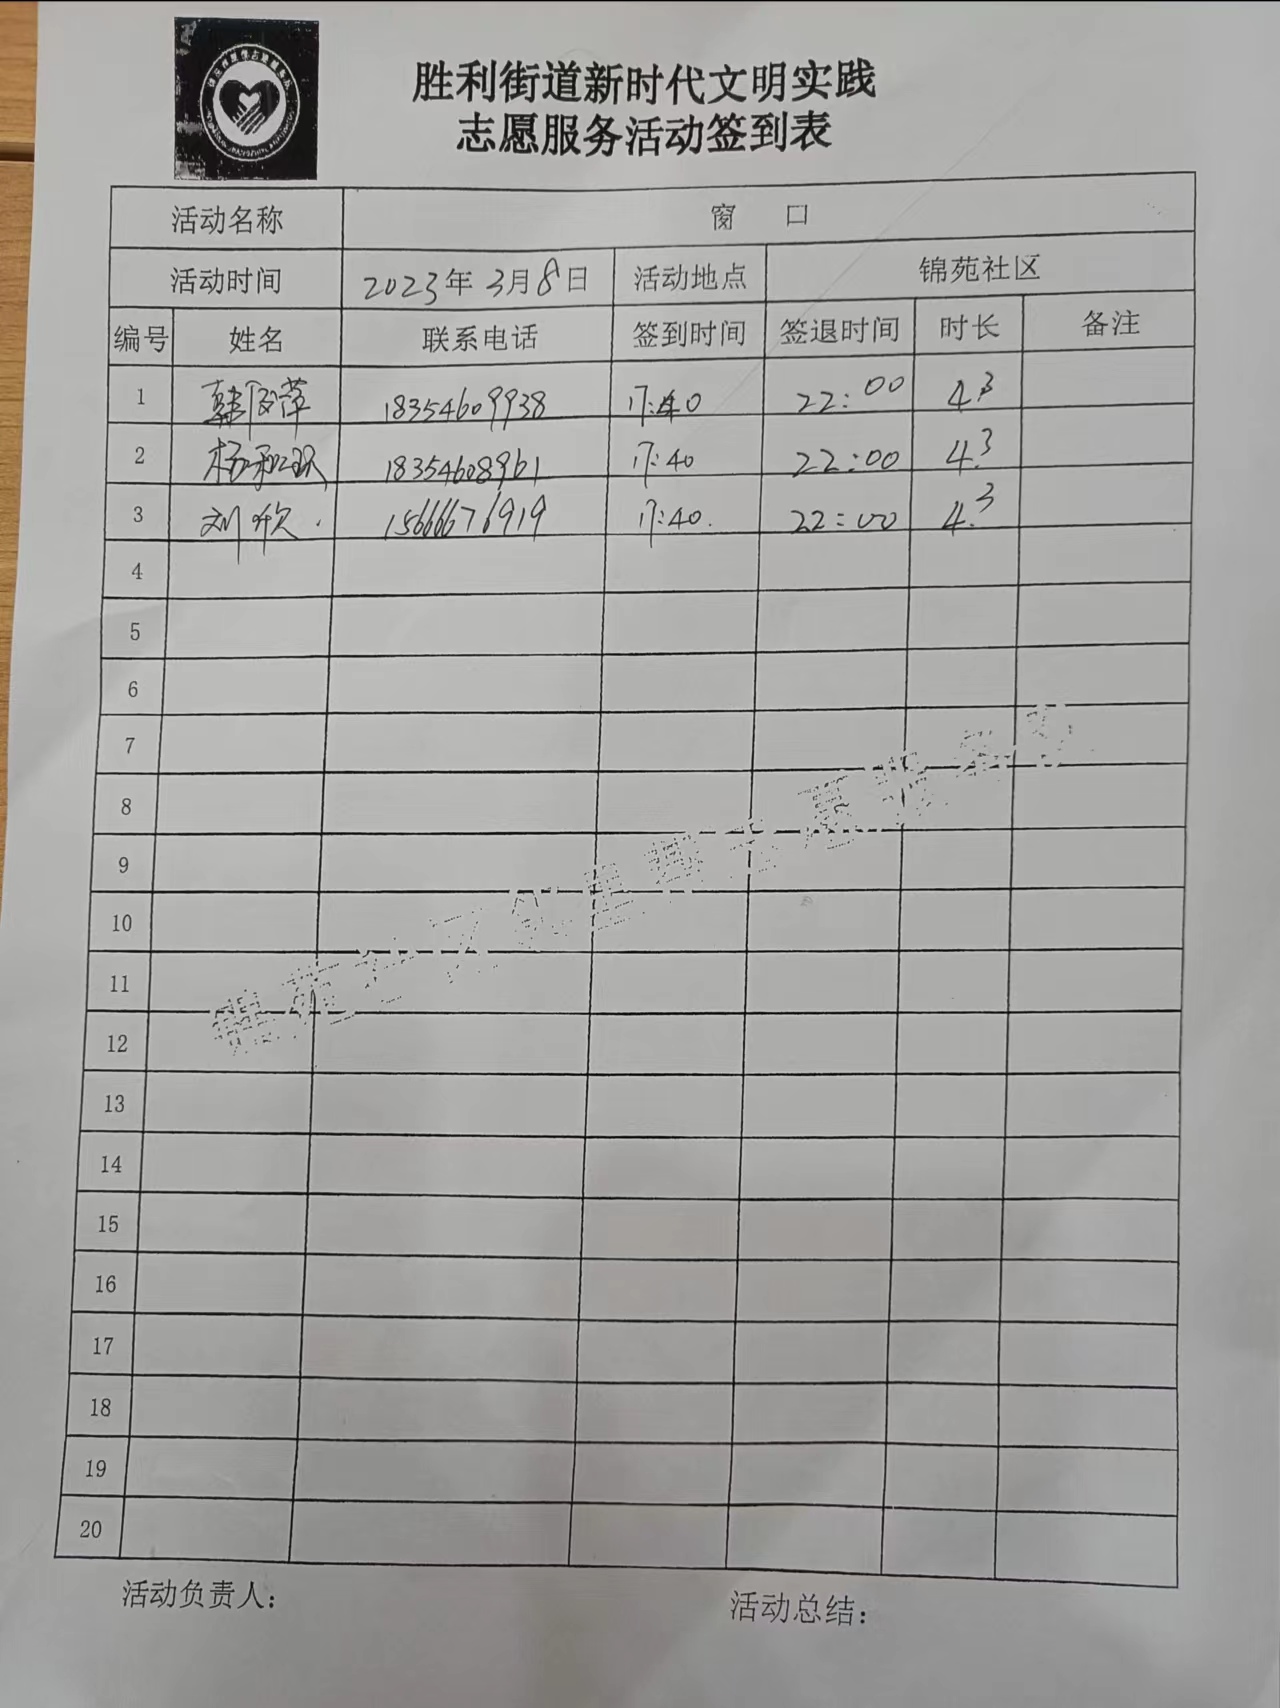 胜利街道新时代文明实践
志愿服务活动签到表
活动名称 窗 口
活动时间 2023年 3月8日 活动地点 锦苑社区
编号 姓名 联系电话 签到时间 签退时间 时长 备注
1 韩 萍 18354609938 17:40 22:00 4.3
2 杨 18354608961 17:40 22:00 4.3
3 刘欣. 15666676919 17:40. 22:00 4.3
4
5
6
7
8
9
10
11
12
13
14
15
16
17
18
19
20
活动负责人: 活动总结: